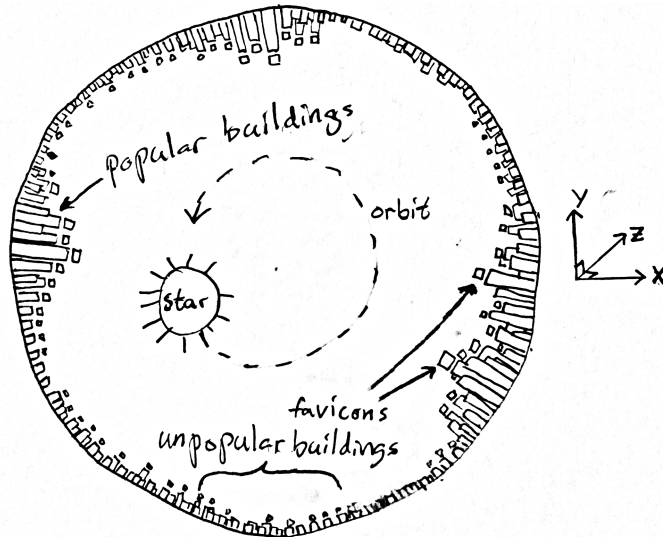 popular buildings
orbit
Y
Z
X
star
favicons
unpopular buildings